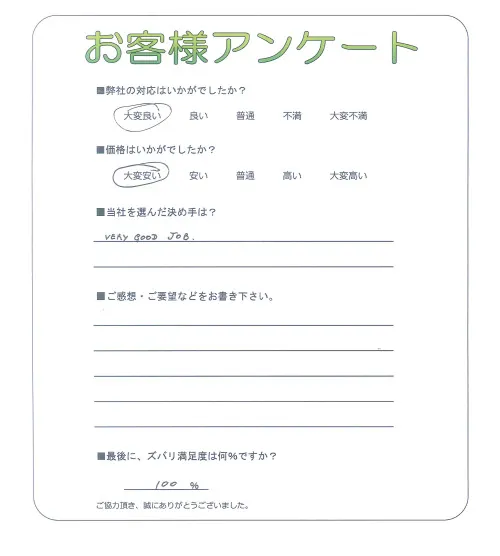 お客様アンケート
■弊社の対応はいかがでしたか？
大変良い 良い 普通 不満 大変不満
■価格はいかがでしたか？
大変安い 安い 普通 高い 大変高い
■当社を選んだ決め手は？
VERY GOOD JOB.
■ご感想・ご要望などをお書き下さい。
■最後に、ズバリ満足度は何%ですか？
100 %
ご協力頂き、誠にありがとうございました。